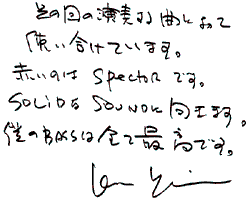 その回の演奏する曲によって
使い分けています。
赤いのは Spector です。
SOLIDな SOUNDに向きます。
僕のBASSは全て最高です。